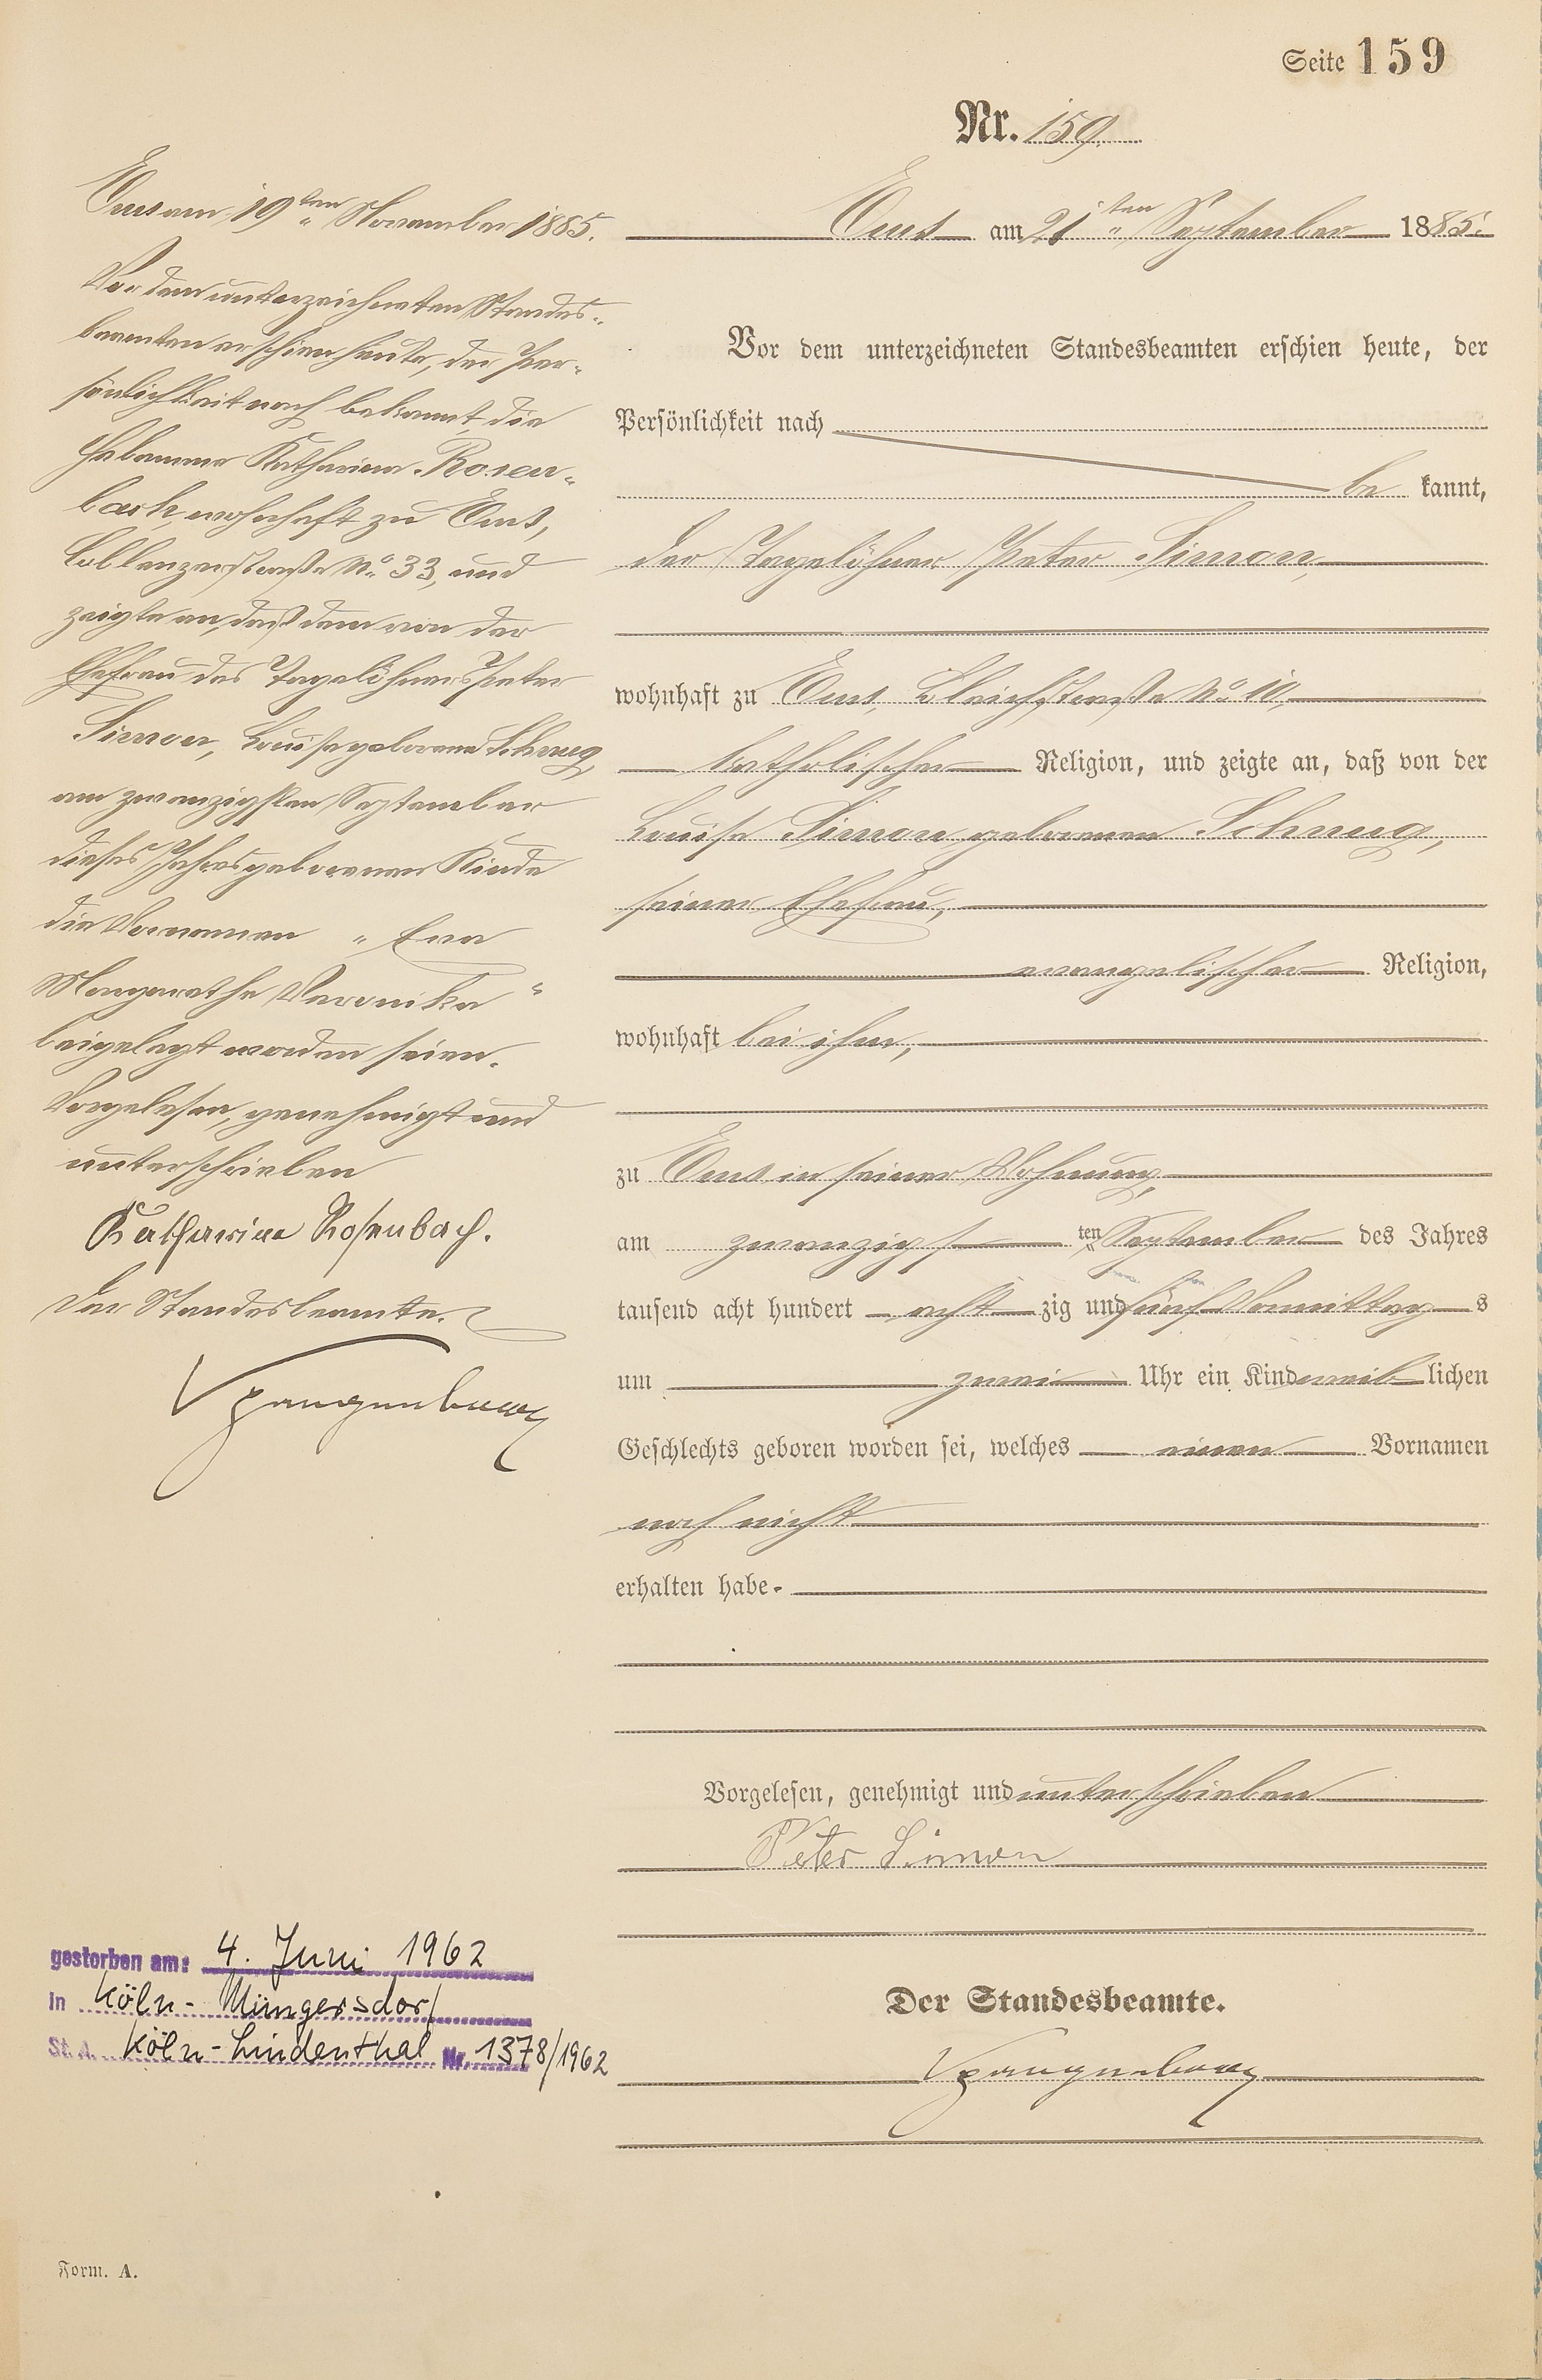 Seite 159
Nr. 159.
Ems am 19ten November 1885.
Vor dem unterzeichneten Standes-
beamten erschien heute, der Per-
sönlichkeit nach bekannt, die
Hebamme Katharina Rosen-
bach, wohnhaft zu Ems,
Coblenzerstraße No 33, und
zeigte an, daß dem von der
Ehefrau des Tagelöhners Peter
Simon, Louise geborene Schnug,
am zwanzigsten September
dieses Jahres geborenen Kinde
die Vornamen „Eva
Margarethe Veronika“
beigelegt worden seien.
Vorgelesen, genehmigt und
unterschrieben
Katharina Rosenbach.
Der Standesbeamte.
Spangenberg
gestorben am: 4. Juni 1962
in Köln-Müngersdorf
St. A. Köln-Lindenthal Nr. 1378/1962
Ems am 21ten September 1885.
Vor dem unterzeichneten Standesbeamten erschien heute, der
Persönlichkeit nach
be kannt,
der Tagelöhner Peter Simon,
wohnhaft zu Ems, Bleichstraße No 10,
katholischer Religion, und zeigte an, daß von der
Louise Simon geborenen Schnug,
seiner Ehefrau,
evangelischer Religion,
wohnhaft bei ihm,
zu Ems in seiner Wohnung,
am zwanzigs ten September des Jahres
tausend acht hundert acht zig und fünf Vormittag s
um zwei Uhr ein Kind weib lichen
Geschlechts geboren worden sei, welches einen Vornamen
noch nicht
erhalten habe.
Vorgelesen, genehmigt und unterschrieben
Peter Simon
Der Standesbeamte.
Spangenberg
Form. A.